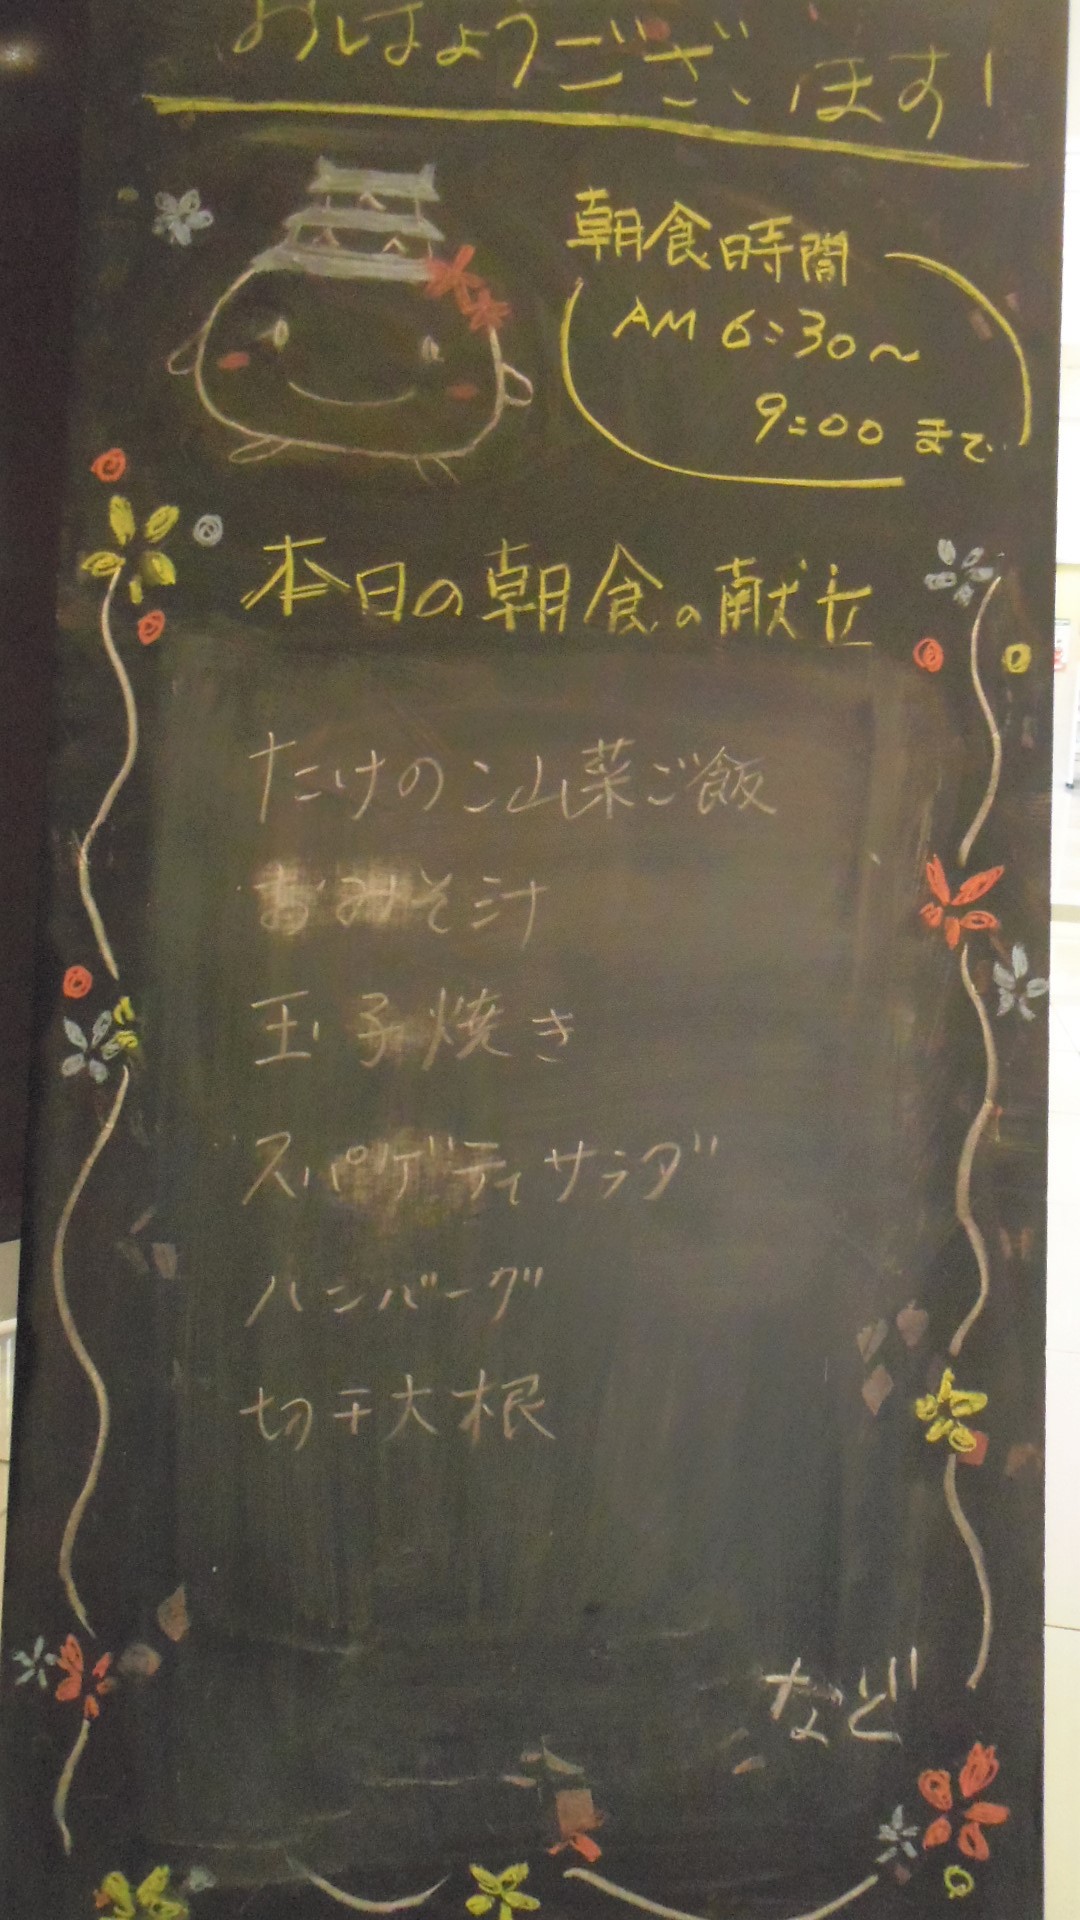 おはようございます!
朝食時間
AM 6:30～
9:00 まで
本日の朝食の献立
たけのこ山菜ご飯
おみそ汁
玉子焼き
スパゲティサラダ
ハンバーグ
切干大根
など